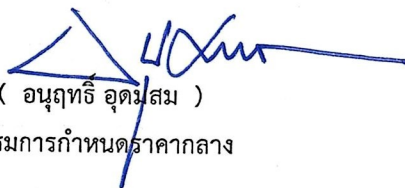 ( อนุฤทธิ์ อุดมสม )
รมการกำหนดราคากลาง